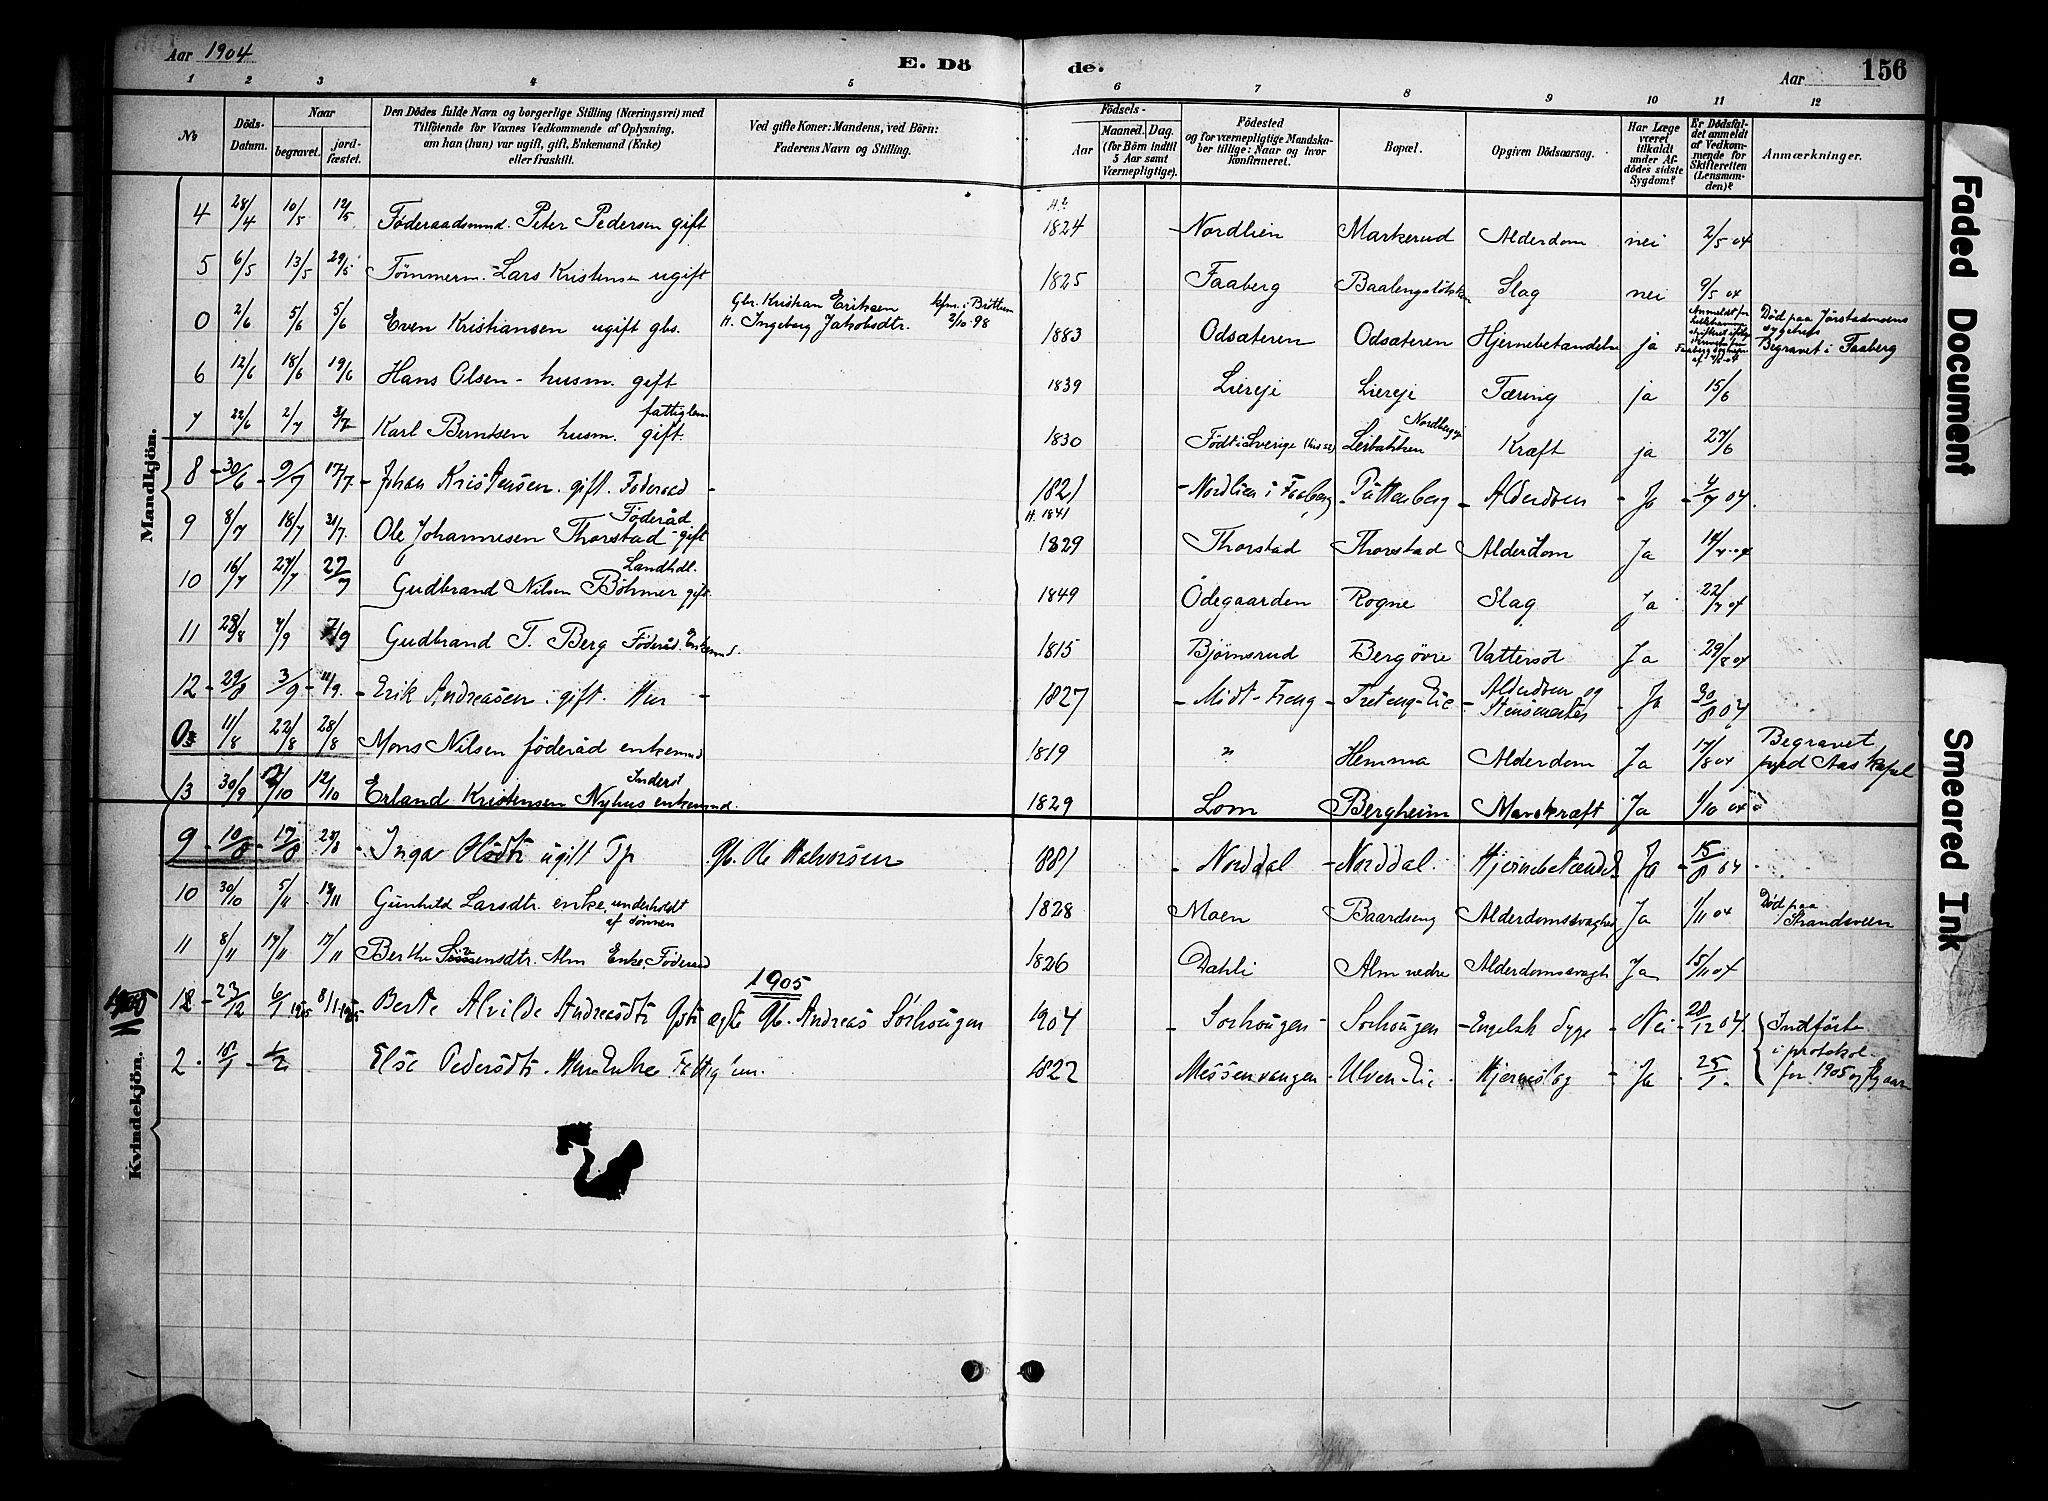 Aar 1904
E. Dö de.
Aar 156
1 2 3 4 5 6 7 8 9 10 11 12
№
Döds-Datum.
Naar
begravet.
jordfæstet.
Den Dödes fulde Navn og borgerlige Stilling (Næringsvei) med
Tilföiende för Voxnes Vedkommende af Oplysning,
om han (hun) var ugift, gift, Enkemand (Enke)
eller fraskilt.
Ved gifte Koner: Mandens, ved Börn:
Faderens Navn og Stilling.
Födsels-
Aar
Maaned. Dag.
(for Börn indtil
5 Aar samt
Værnepligtige).
Födested
og for værnepligtige Mandska-
ber tillige: Naar og hvor
konfirmeret.
Bopæl.
Opgiven Dödsaarsag.
Har Læge
været
tilkaldt
under Af-
dödes sidste
Sygdom?
Er Dödsfal-
det anmeldt
af Vedkom-
mende for
Skifteretten
(Lensman-
den)?
Anmærkninger.
Mandkjön.
4 28/4 10/5 12/5 Föderaadsmnd. Peter Pedersen gift 1824 Nordlien Markerud Alderdom nei 2/5 04
5 6/5 13/5 29/5 Tömmerm. Lars Kristensen ugift 1825 Faaberg Slag nei 9/5 04
0 2/6 5/6 5/6 Even Kristiansen ugift gbs. Gbr. Kristian Eriksen kfm. i Bröttum
H. Ingeborg Jakobsdtr. 2/10 98 1883 Odsæteren Odsæteren Hjernebetændelse ja
Död paa Jörstadmoens
sygehus
Begravet i Faaberg
6 12/6 18/6 19/6 Hans Olsen - husm. gift 1839 Liereje Liereje Tæring ja 15/6
7 22/6 2/7 3/7 Karl Berntsen husm. gift. fattiglem 1830 Født i Sverige Kræft ja 27/6
8 30/6 9/7 17/7 Johan Kristensen. gift. Föderaad 1821 Nordlien i Faaberg Puttenberg Alderdom Ja 4/7 04
9 8/7 18/7 31/7 Ole Johannesen Thorstad gift Föderåd H. 1841 1829 Thorstad Thorstad Alderdom Ja
10 16/7 27/7 27/7 Gudbrand Nilsen Böhmer gift. Landhdl. 1849 Ödegaarden Rogne Slag Ja 22/7 04
11 28/8 4/9 7/9 Gudbrand T. Berg Föderåd. Enkemnd. 1815 Bjørnsrud Berg övre Vattersot Ja 29/8 04
12 29/8 3/9 11/9 Erik Andreasen. gift. Hus 1827 Midt-Freng Alderdom og Ja 30/8 04
0 11/8 22/8 28/8 Mons Nilsen föderåd enkemnd 1819 " Hemma Alderdom Ja 17/8 04 Begravet
ved Aas Kapel
13 30/9 12/10 12/10 Erland Kristensen Nyhus enkemnd. Inderst 1829 Lom Bergheim Mavekræft Ja 1/10 04
Kvindekjön.
9 10/8 17/8 Inga Olsdtr ugift Tp Gb. Ole Halvorsen 1881 Norddal Norddal. Hjernebetændelse Ja 15/8 04
10 30/10 5/11 13/11 Gunhild Larsdtr. enke, underholdt
af sönnen 1828 Moen Baardseng Alderdomssvaghed Ja 1/11 04 Död paa
Strandveen
11 8/11 17/11 17/11 Berthe Alm Enke. Föderaad 1826 Dahli Alm nedre Alderdomssvagh Ja 15/11 04
1905
12 23/12 6/1 1905 8/1 1905 Berte Alvilde Andreasdtr ægte Gb. Andreas Sörhougen 1904 Sorhougen Sorhougen Engelsk Syge Nei 28/12 04 Indförte
i protokol
for 1905 og
2 1/2 Else Pedersdtr. Enke. 1822 Messenvangen Hjerneslag Ja 25/1
Faded Document
Smeared Ink